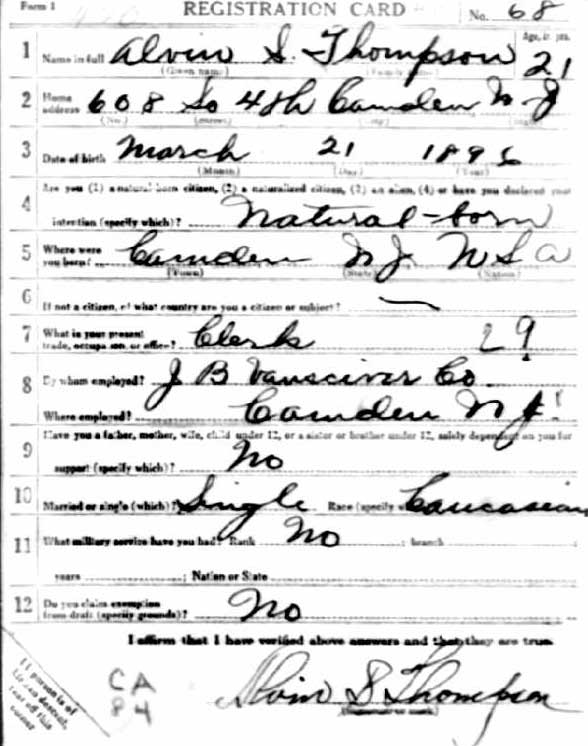 Form 1 REGISTRATION CARD No. 68
1 Name in full Alvin S. Thompson Age, in yrs. 21
(Given name) (Family name)
2 Home address 608 So 4th Camden N J
(No.) (Street) (City) (State)
3 Date of birth March 21 1896
(Month) (Day) (Year)
4 Are you (1) a natural-born citizen, (2) a naturalized citizen, (3) an alien, (4) or have you declared your
intention (specify which)? Natural-born
5 Where were you born? Camden N J U S A
(Town) (State) (Nation)
6 If not a citizen, of what country are you a citizen or subject? —
7 What is your present trade, occupation, or office? Clerk 29
8 By whom employed? J B Vansciver Co.
Where employed? Camden N J
9 Have you a father, mother, wife, child under 12, or a sister or brother under 12, solely dependent on you for
support (specify which)? No
10 Married or single (which)? Single Race (specify Caucasian
11 What military service have you had? Rank No ; branch
years ; Nation or State
12 Do you claim exemption from draft (specify grounds)? No
I affirm that I have verified above answers and that they are true.
If person is of
African descent,
tear off this
corner
CA
84
Alvin S Thompson
(Signature or mark)